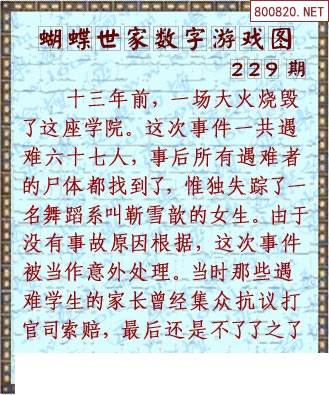 800820.NET
蝴蝶世家数字游戏图
229 期
十三年前，一场大火烧毁
了这座学院。这次事件一共遇
难六十七人，事后所有遇难者
的尸体都找到了，惟独失踪了一
名舞蹈系叫靳雪歆的女生。由于
没有事故原因根据，这次事件
被当作意外处理。当时那些遇
难学生的家长曾经集众抗议打
官司索赔，最后还是不了了之了